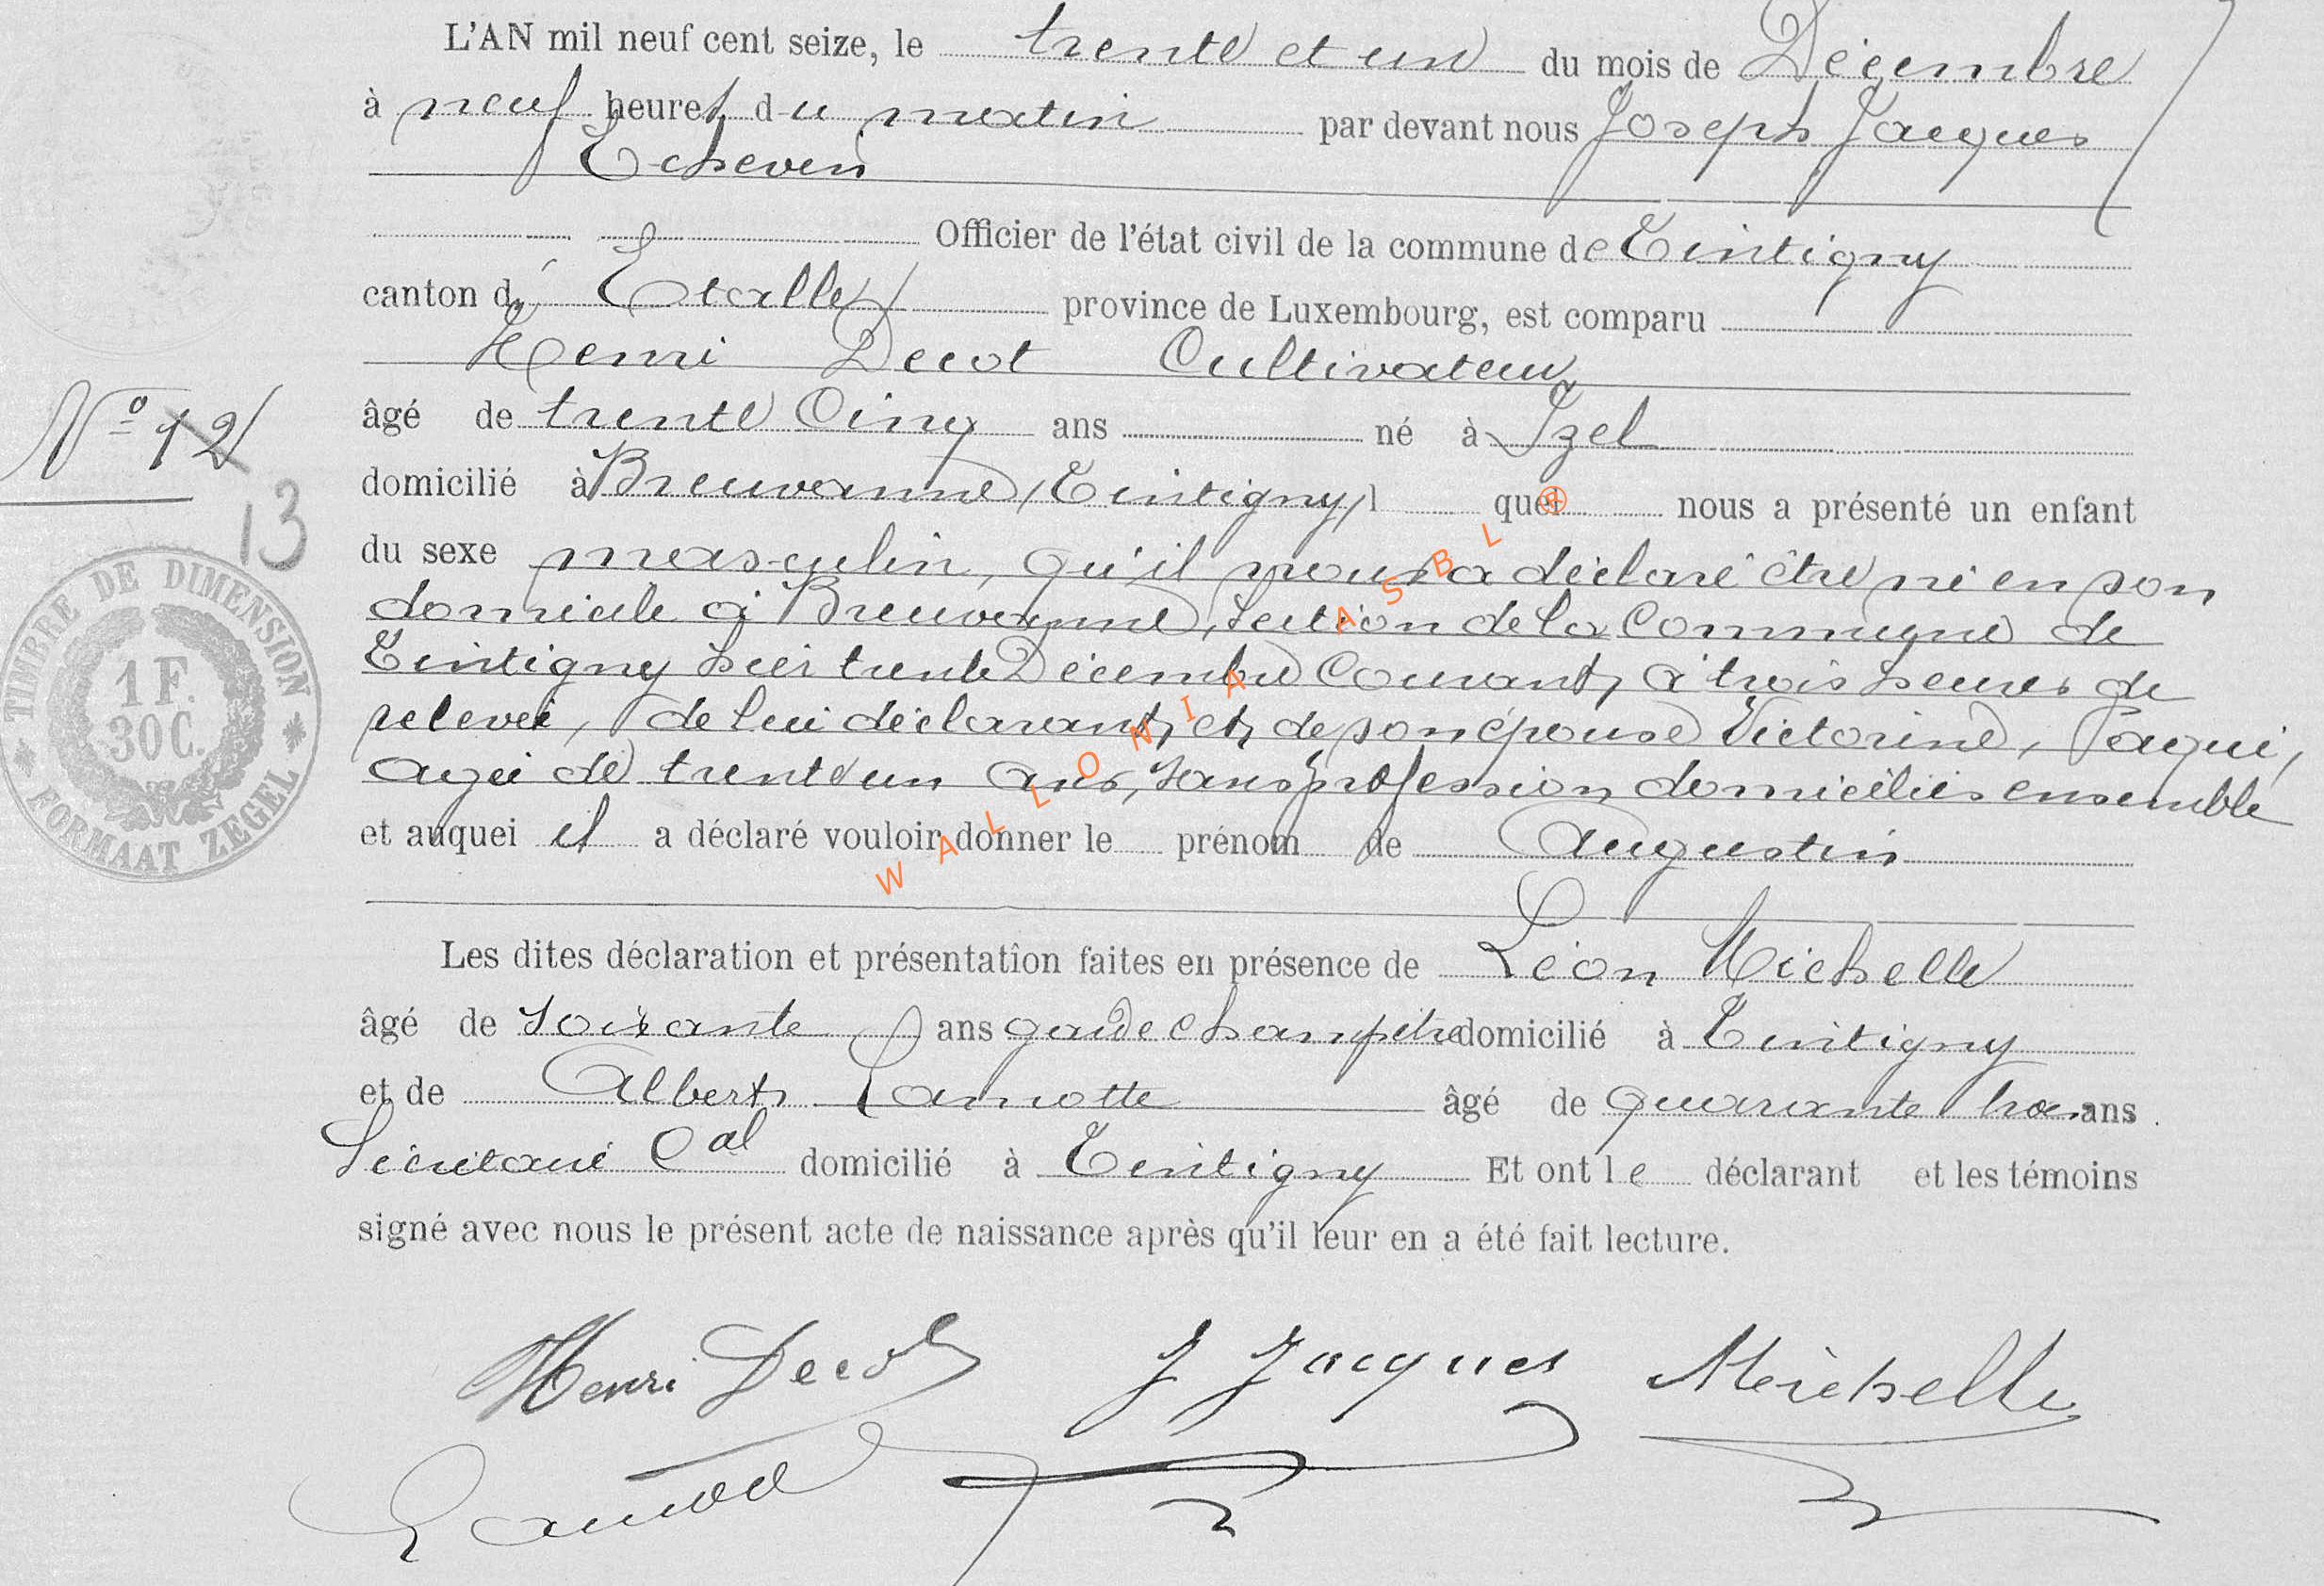 L'AN mil neuf cent seize, le trente et un du mois de Décembre
à neuf heures du matin par devant nous Joseph Jacques
Echevin
Officier de l'état civil de la commune de Tintigny
canton d' Etalle province de Luxembourg, est comparu
Henri Decot Cultivateur
N° 12
âgé de trente Cinq ans né à Izel
domicilié à Breuvanne (Tintigny) quei nous a présenté un enfant
13
du sexe masculin, qu'il nous a déclaré être né en son
domicile à Breuvanne, Section de la Commune de
Tintigny hier trente Décembre Courant, à trois heures de
relevée, de lui déclarant, et de son épouse Victorine, Paqui,
agée de trente un ans, sans profession domiciliés ensemble
et auquel il a déclaré vouloir donner le prénom de Augustin
TIMBRE DE DIMENSION
1 F.
30 C.
FORMAAT ZEGEL
WALLONIA ASBL ®
Les dites déclaration et présentation faites en présence de Léon Michelle
âgé de soixante ans garde champêtre domicilié à Tintigny
et de Albert Lamotte âgé de quarante trois ans
Secrétaire Cal domicilié à Tintigny Et ont le déclarant et les témoins
signé avec nous le présent acte de naissance après qu'il leur en a été fait lecture.
Henri Decot J Jacques Michelle